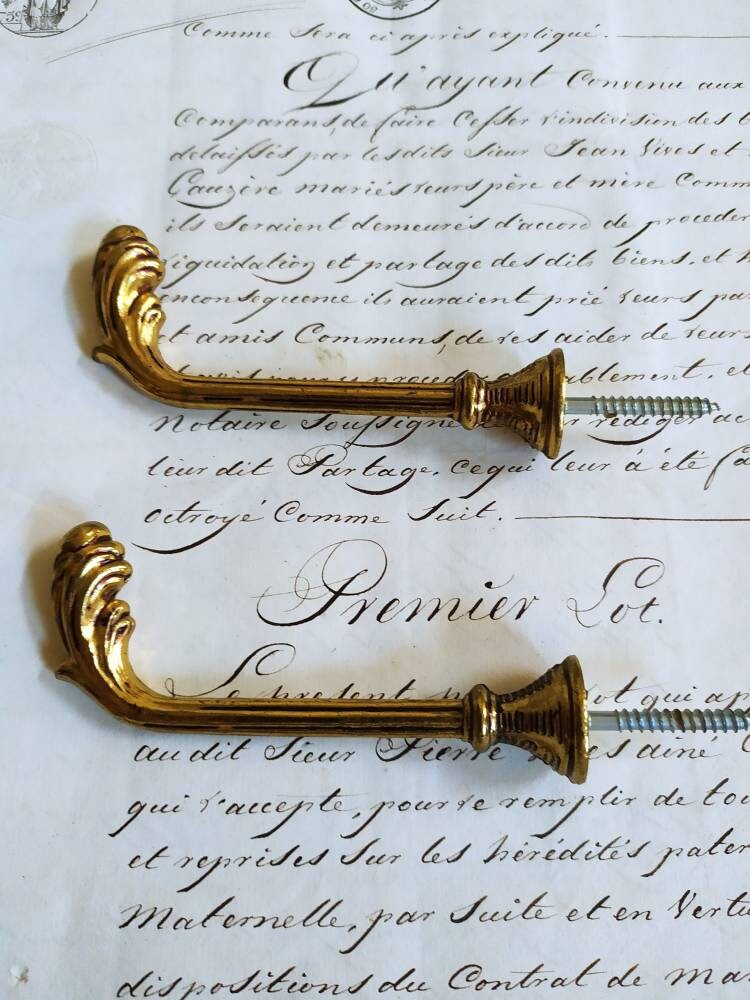 Comme Sera ci après expliqué.
Qu'ayant Convenu aux
Comparans, de faire Cesser l'indivision des
delaissés par lesdits Sieur Jean Vives et
Cauzère mariés leurs père et mère Comm
ils Seraient demeurés d'accord de proceder
liquidation et partage desdits biens, et
enconsequence ils auraient prié leurs
et amis Communs, de les aider de leurs
ablement, et
Notaire Soussigné rediger
leur dit Partage, Cequi leur à été
octroyé Comme Suit.
Premier Lot.
Le present lot qui
audit Sieur Pierre ainé
qui l'accepte, pour le remplir de
et reprises Sur les hérédités
Maternelle, par Suite et en Vertu
dispositions du Contrat de